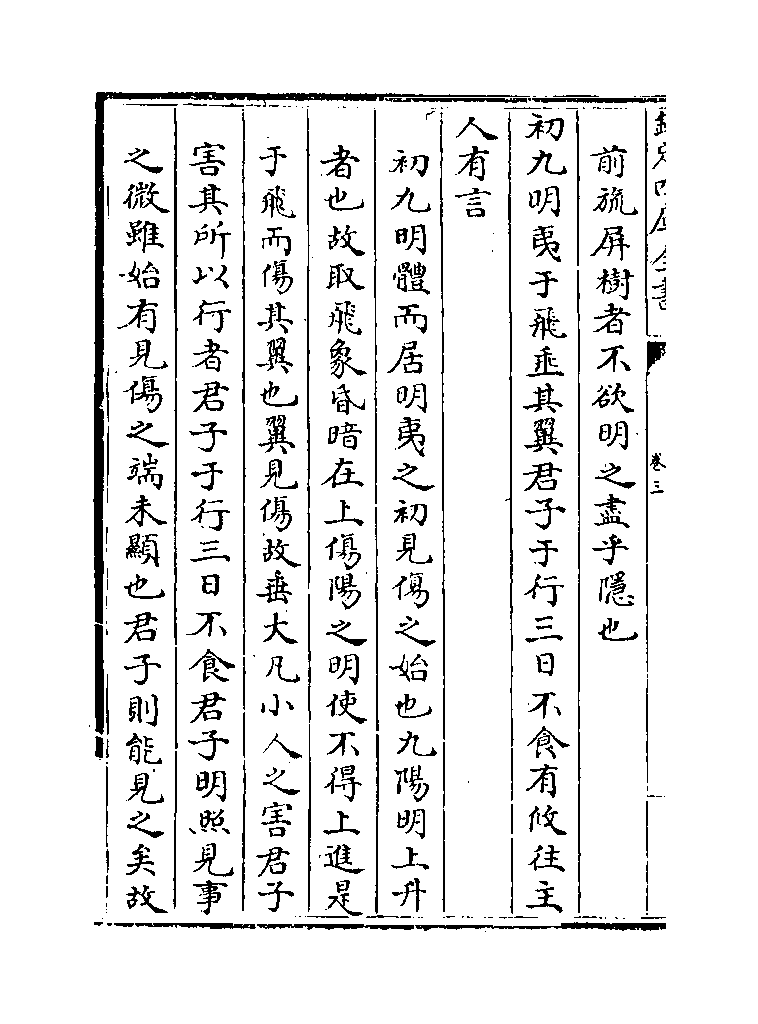 欽定四庫全書
卷三
前旒屏樹者不欲明之盡乎隱也
初九明夷于飛垂其翼君子于行三日不食有攸往主
人有言
初九明體而居明夷之初見傷之始也九陽明上升
者也故取飛象昏暗在上傷陽之明使不得上進是
于飛而傷其翼也翼見傷故垂大凡小人之害君子
害其所以行者君子于行三日不食君子明照見事
之微雖始有見傷之端未顯也君子則能見之矣故